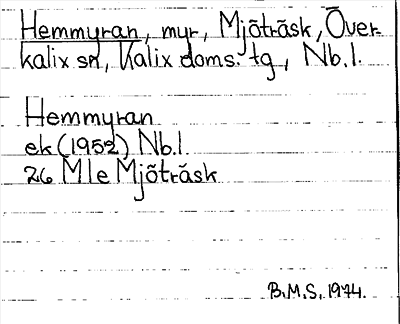 Hemmyran, myr, Mjöträsk, Över-
kalix sn, Kalix doms. tg, Nb.l.
Hemmyran
ek (1952) Nb.l.
26 M le Mjöträsk
B.M.S. 1974.